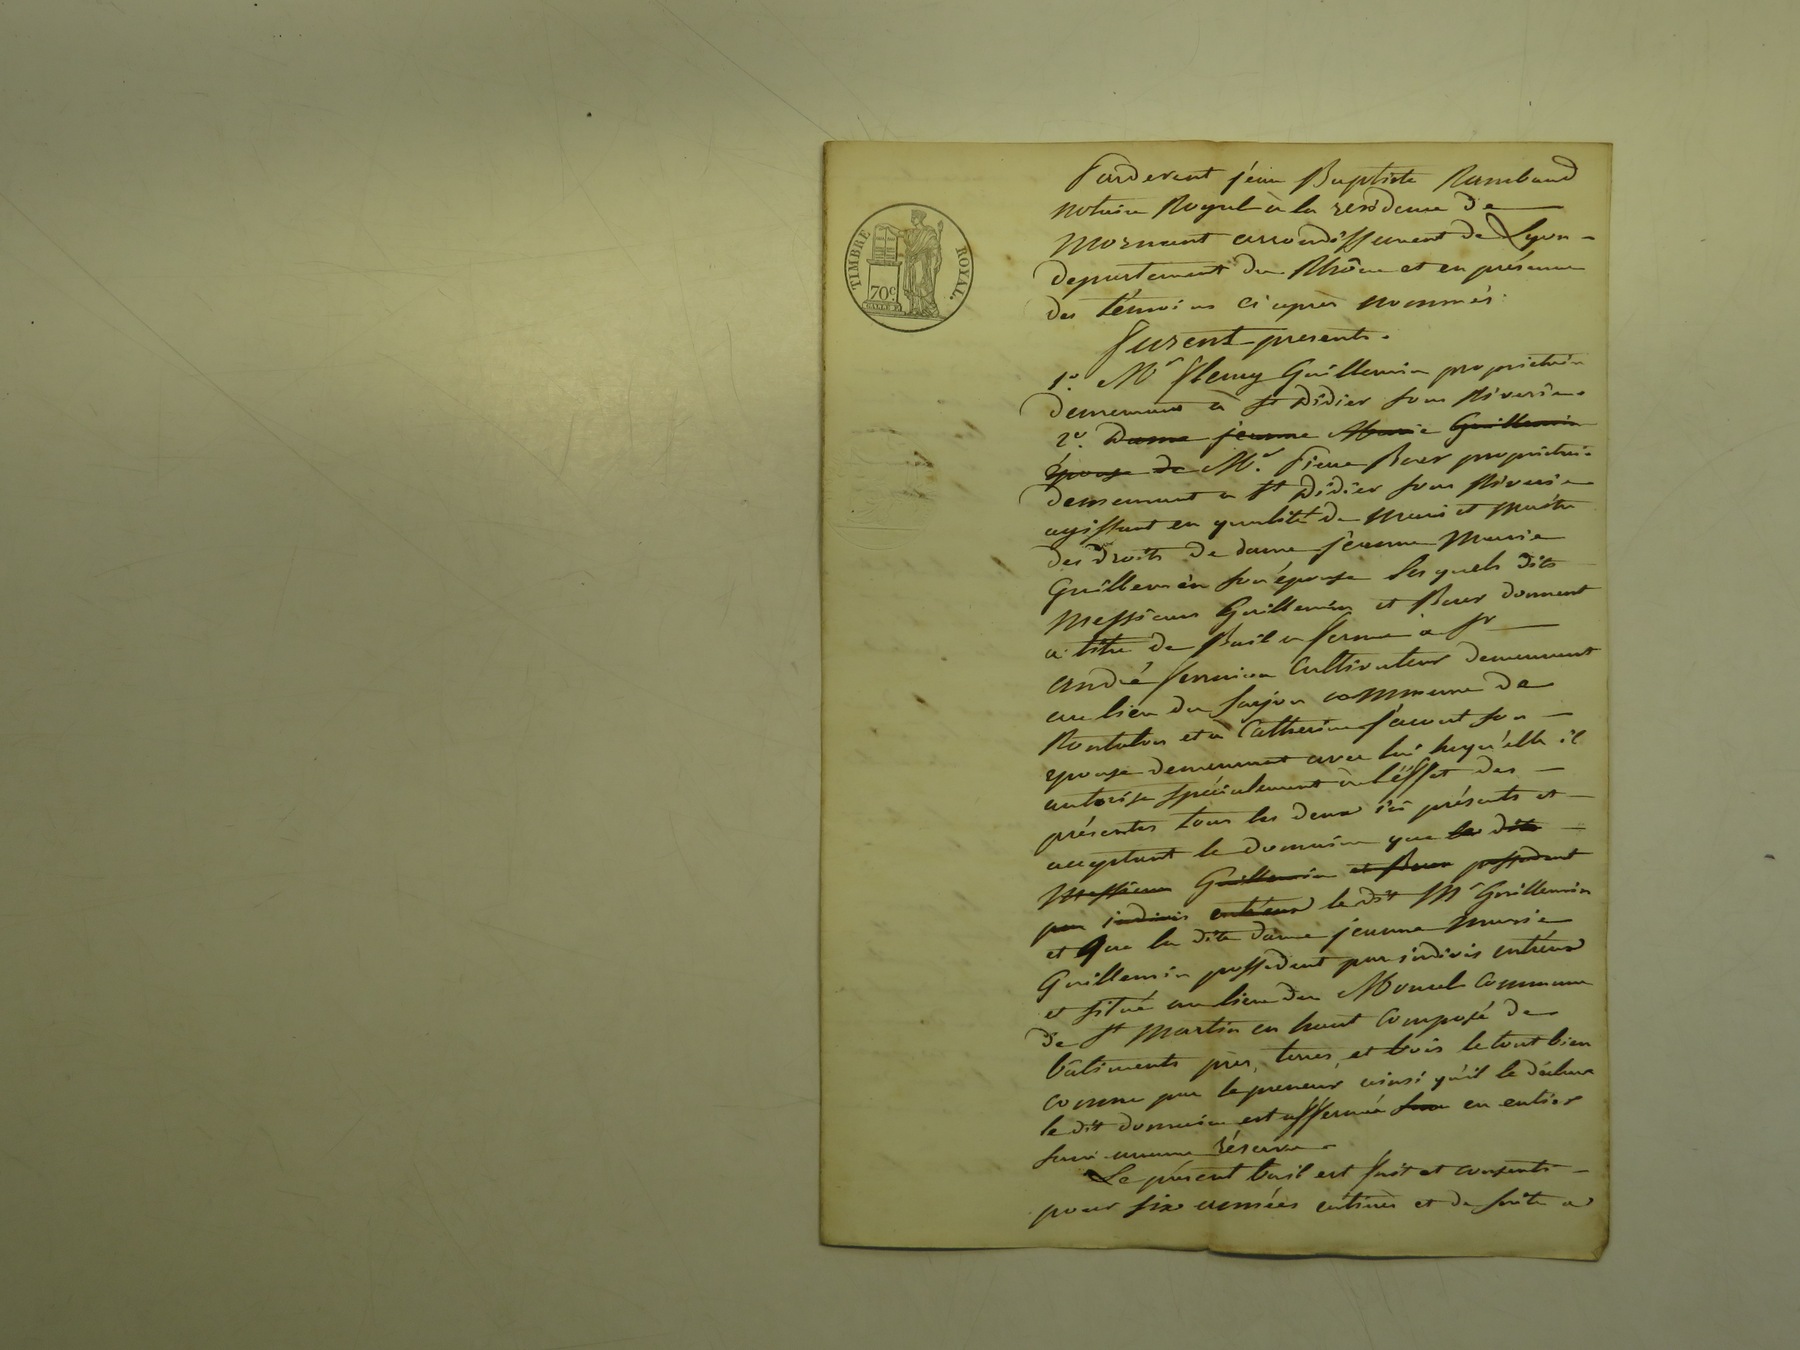 TIMBRE ROYAL.
70c
Pardevant jean Baptiste Rambaud
notaire Royal à la residence de
Mornant arrondissement de Lyon
departement du Rhône et en présence
des témoins ci après nommés.
furent presents.
1.° Mr fleury Guillermin propriétaire
demeurant à St Didier sous Riverie
2.° Dame jeanne Marie Guillermin
épouse de Mr. Pierre propriétaire
demeurant a St Didier sous Riverie
agissant en qualité de Mari et Maitre
des droits de dame jeanne Marie
Guillermin son épouse lesquels dits
Messieurs Guillermin et donnent
a titre de Bail a ferme a Sr
andré cultivateur demeurant
au lieu du commune de
Rontalon et a Catherine son
epouse demeurant avec lui laqu'elle il
autorise spécialement à l'éffet des
présentes tous les deux ici présents et
acceptant le domaine que les dits
Messieurs Guillermin et possedent
par indivis entreux le dit Mr Guillermin
et Que la dite dame jeanne Marie
Guillermin possedent par indivis entreux
et situé au lieu du commune
de St Martin en haut composé de
bâtiments près, terres et bois le tout bien
connu par le preneur ainsi qu'il le déclare
le dit domaine est affermé en entier
sans aucune réserve.
Le présent bail est fait et consenti
pour six années entières et de suite a